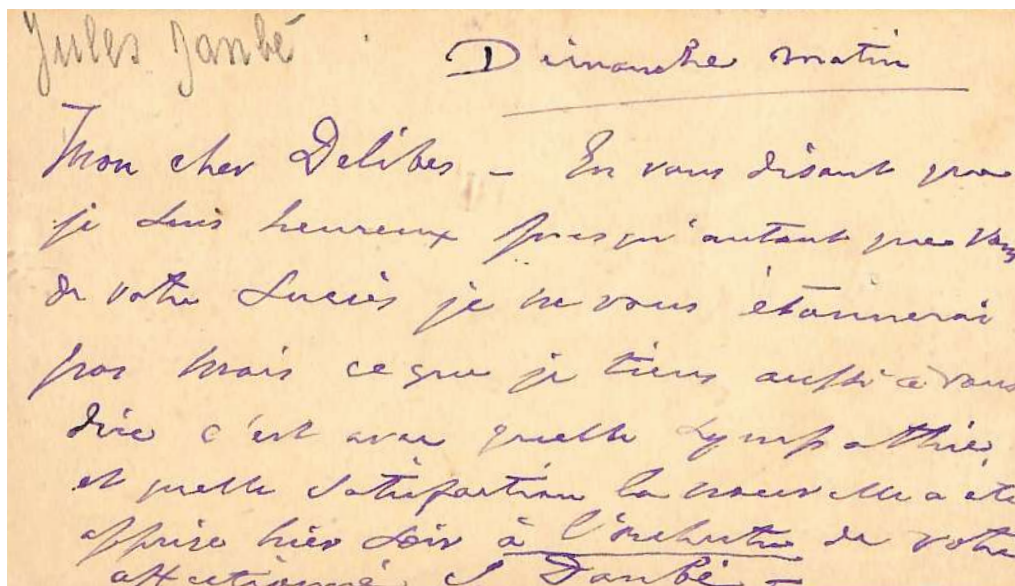 Jules Danbé
Dimanche matin
Mon cher Delibes – En vous disant que
je suis heureux presqu'autant que vous
de votre succès je ne vous étonnerai
pas mais ce que je tiens aussi à vous
dire c'est avec quelle sympathie
et quelle satisfaction la nouvelle a été
apprise hier soir à l'orchestre de votre
affectionné J Danbé –